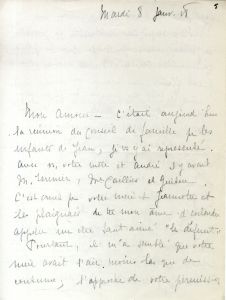 Mardi 8 Janv. 18
5
Mon Amour - C'était aujourd'hui
la réunion du Conseil de famille pr les
enfants de Jean, je vs y ai représenté
avec vs, votre mère et André, il y avait
M. , Mr Caillies et
C'est année pr votre mère et Jeannette et
les plaignais de tte mon âme d'entendre
appeler une être tant aimé "le défunt"
Pourtant, il m'a semblé que votre
mère avait l'air moins las que de
coutume, l'approche de votre permission